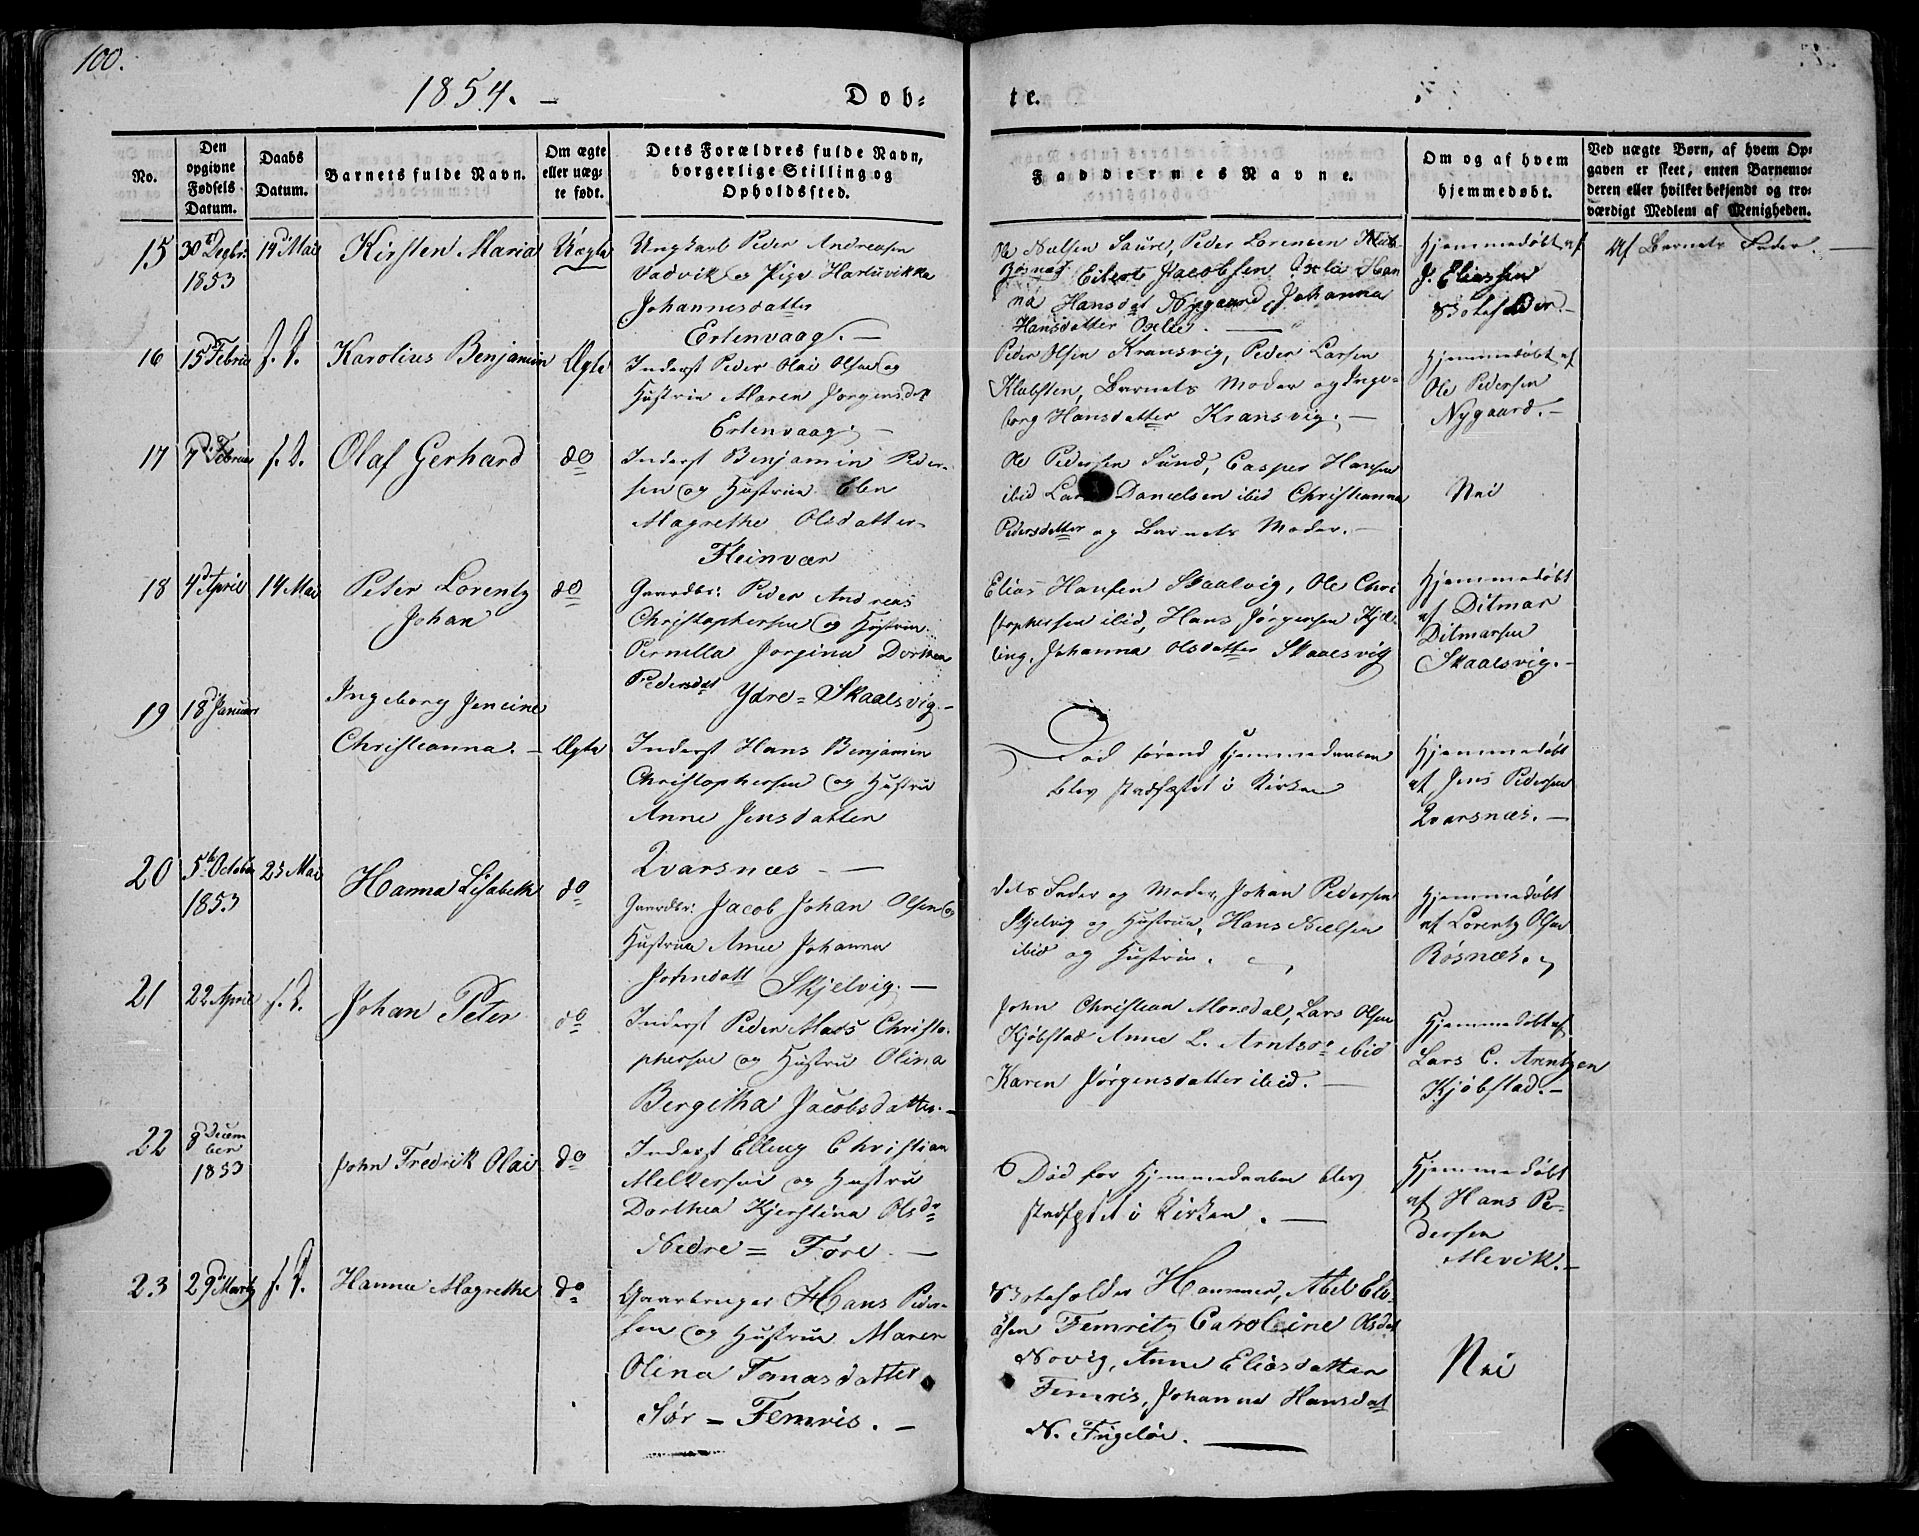 100.
1854. –
Døb-
te.
No.
Den opgivne Fødsels Datum.
Daabs Datum.
Barnets fulde Navn.
Om ægte eller uægte født.
Dets Forældres fulde Navn, borgerlige Stilling og Opholdssted.
Faddernes Navne.
Om og af hvem hjemmedøbt.
Ved uægte Børn, af hvem Op-
gaven er skeet, enten Barnemo-
deren eller hvilket bekjendt og tro-
værdigt Medlem af Menigheden.
15
30 Decbr
1853
14 Mai
Kirsten Maria
Uægte
Ungkarl Peder Andreasen
Vadvik og Pige
Johannesdatter
Ertenvaag. –
Ole Nielsen Saure, Peder Lorensen
Røsnæs Eilert Jacobsen Oxla Han
na Hansdat Nygaard, Johanna
Hansdatter
Hjemmedøbt af
J. Eliassen
Botsholder. –
Af Barnets Fader. –
16
15 Febru
f. D.
Karolius Benjamin
Ægte
Inderst Peder Olai Olsen og
Hustrue Maren Jorgensdat
Ertenvaag. –
Peder Olsen Kransvig, Peder Larsen
Klubsten, Barnets Moder og Inge-
borg Hansdatter Kransvig. –
Hjemmedøbt af
Ole Pedersen
Nygaard. –
17
7 Februar
f. D.
Olaf Gerhard
do
Inderst Benjamin Peder-
sen og Hustrue Elen
Magrethe Olsdatter
Fleinvær
Ole Pedersen Sund, Casper Hansen
ibid Lars Danielsen ibid Christianna
Pedersdatter og Barnets Moder. –
Nei
18
4 April
14 Mai
Peter Lorentz
Johan
do
Gaardbr: Peder Andreas
Christophersen og Hustrue
Pernilla Jorgina Dorthea
Pedersdat Ydre = Skaalsvig. –
Elias Hansen Skaalsvig, Ole Chri
stophersen ibid, Hans Jørgensen Kjel-
ling, Johanna Olsdatter Skaalsvig
Hjemmedøbt
af Ditmar
Ditmarsen
Skaalsvig. –
19
18 Januar
Ingeborg Jensine
Christianna. –
Ægte
Inderst Hans Benjamin
Christophersen og Hustrue
Anne Jensdatter
Qvarsnæs –
Død førend Hjemmedaaben
blev stadfæstet i Kirken
Hjemmedøbt
af Jens Pedersen
Qvarsnæs. –
20
5 October
1853
25 Mai
Hanna Lisabeth
do
Gaardbr: Jacob Johan Olsen og
Hustrue Anne Johanna
Johnsdatt Skjelvig. –
dets Fader og Moder, Johan Pedersen
Skjelvig og Hustrue, Hans Nielsen
ibid og Hustrue.
Hjemmedøbt
af Lorentz Olsen
Røsnæs.
21
22 April
f. D.
Johan Peter
do
Inderst Peder Mads Christo-
phersen og Hustru Olina
Bergitha Jacobsdatter. –
John Christian Moredal, Lars Olsen
Kjøbstad Anne L. Arntsd ibid
Karen Jørgensdatter ibid. –
Hjemmedøbt af
Lars C. Arentzen
Kjøbstad. –
22
8 Decem
ber
1853
John Fredrik Olai
do
Inderst Elling Christian
Melkersen og Hustru
Dorthea Kjerstina Olsd
Nedre = Fore. –
Død før Hjemmedaaben blev
stadfæstet i Kirken. –
Hjemmedøbt
af Hans Pe-
dersen
Mevik. –
23
29 Marts
f. D.
Hanna Magrethe
do
Gaardbruger Hans Peder-
sen og Hustrue Maren
Olina Tomasdatter
Sør = Femris. –
Botsholder Hammer, Abel
Femris Caroline Olsdat
Novig, Anne Eliasdatter
Femris, Johanna Hansdat
N. Fugeløe.
Nei